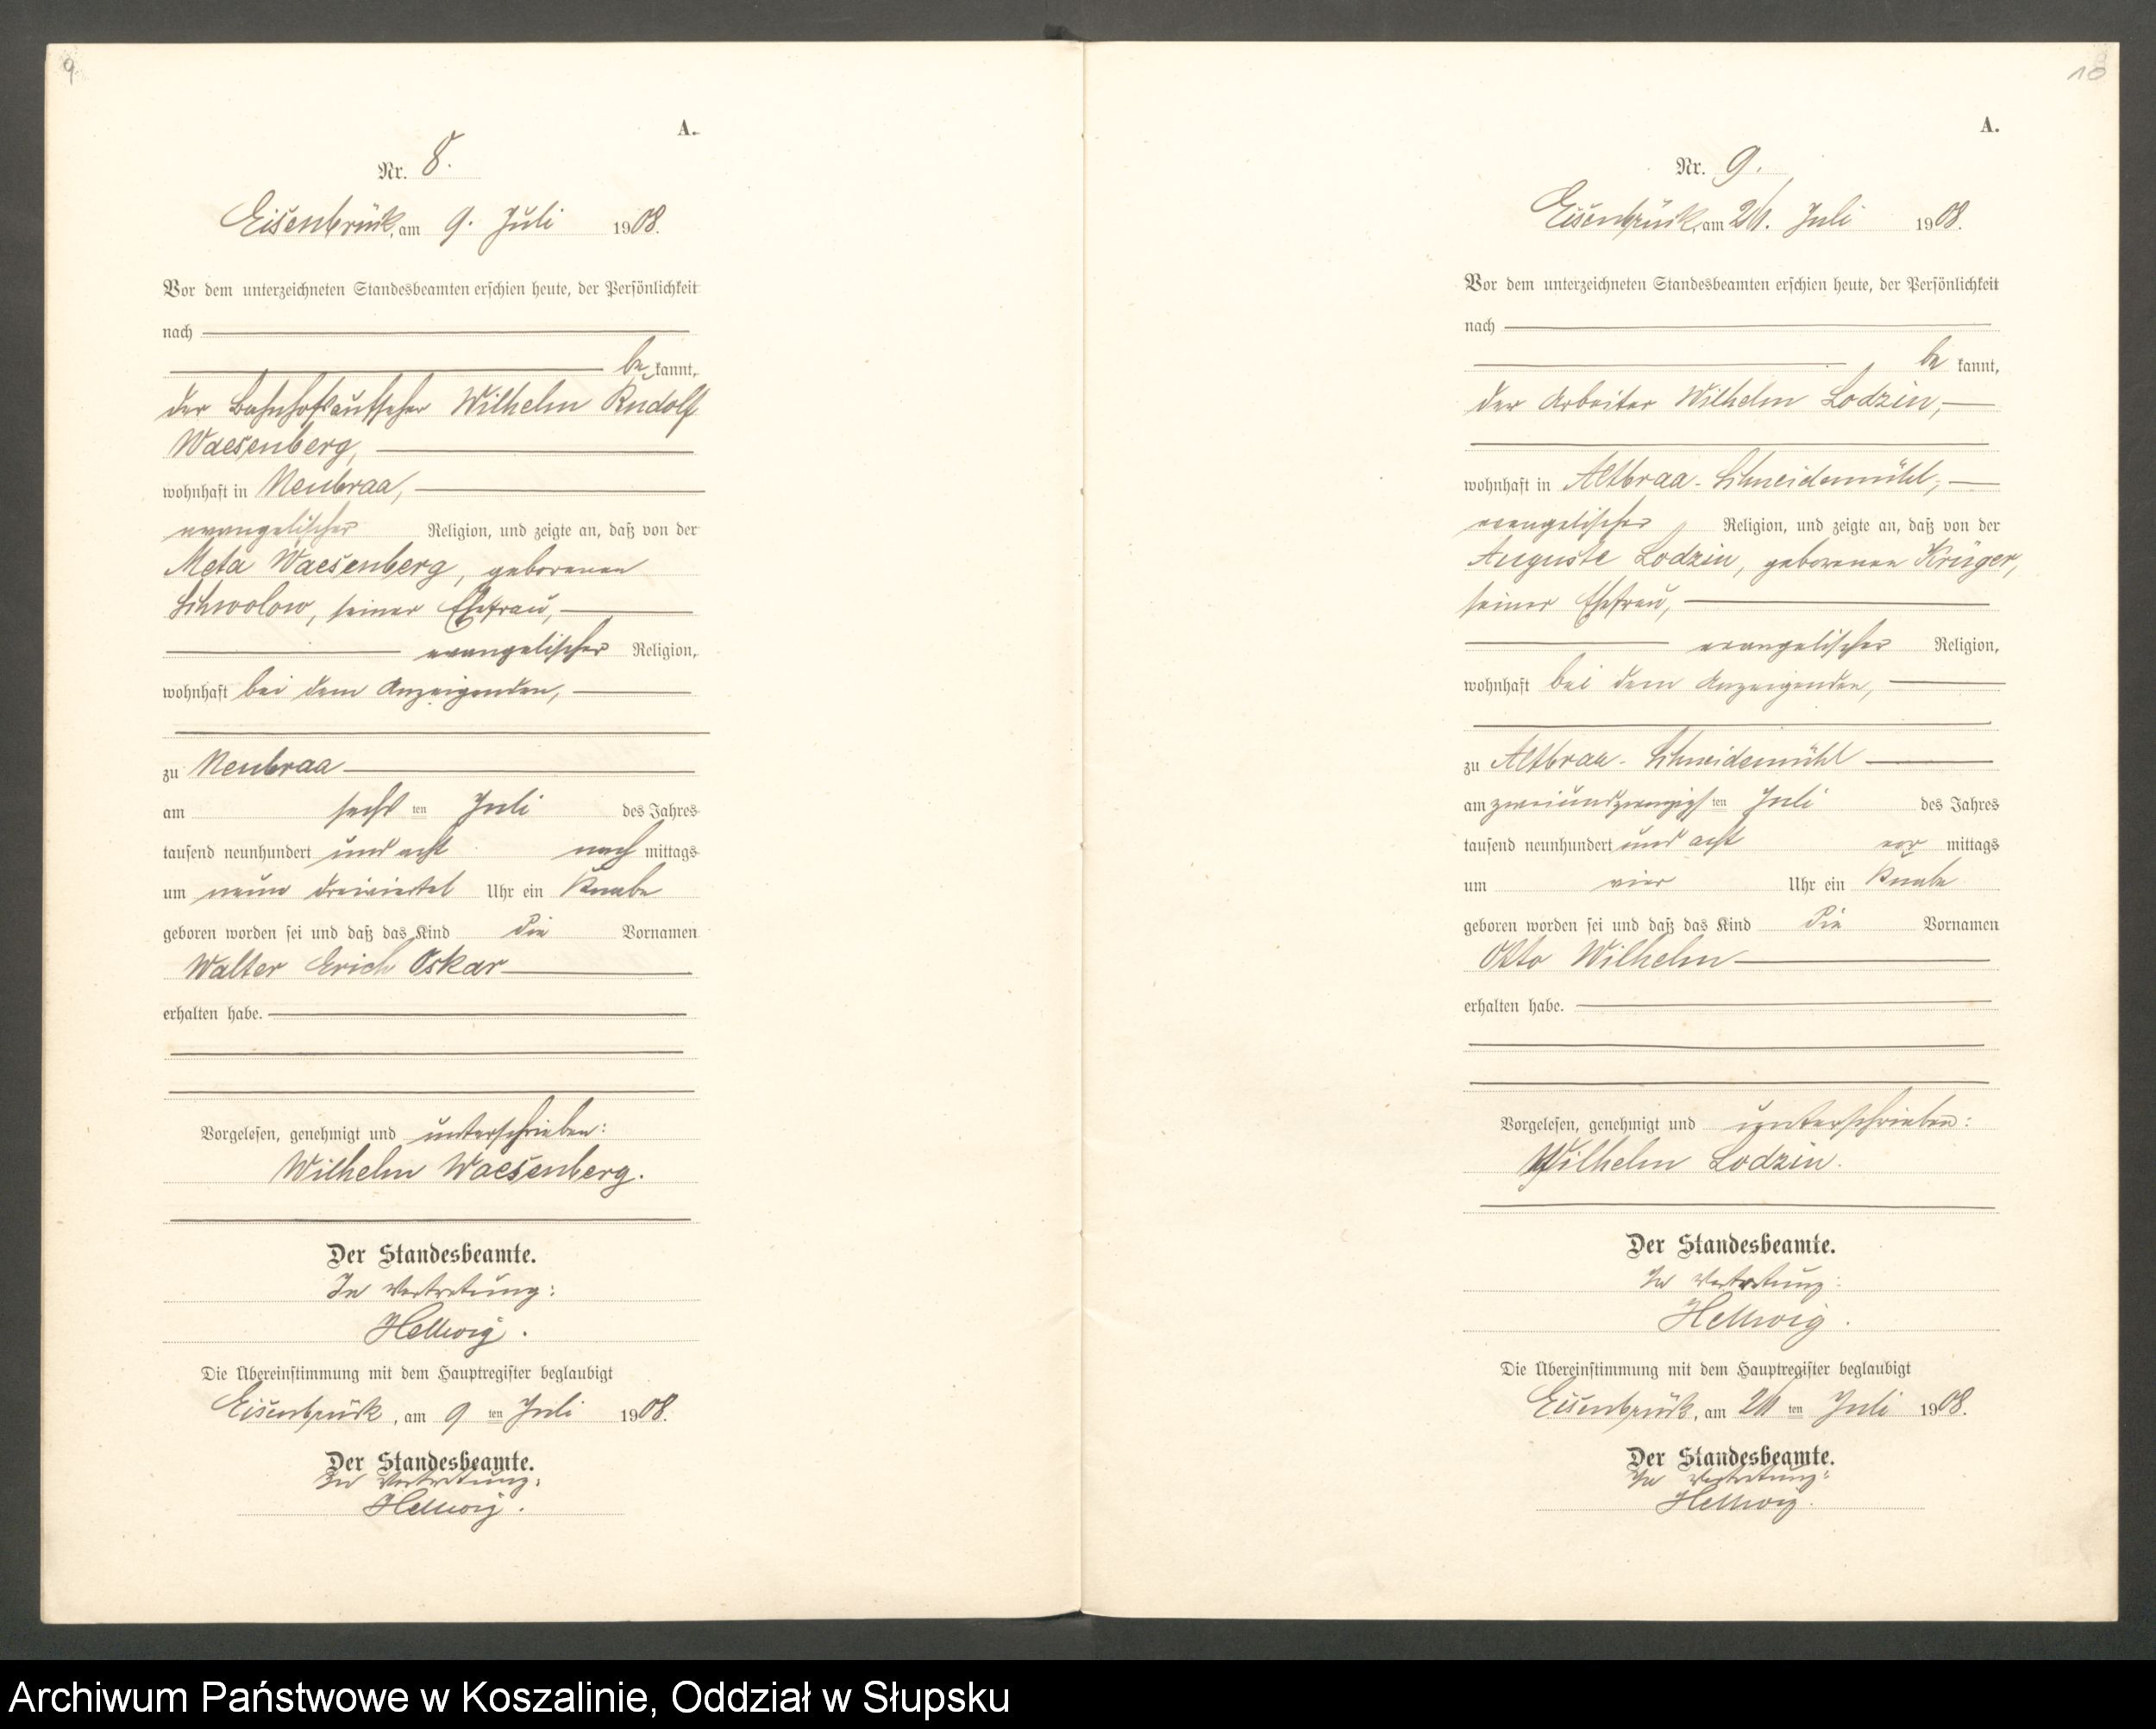 9
A.
Nr. 8.
Eisenbrück, am 9. Juli 1908.
Vor dem unterzeichneten Standesbeamten erschien heute, der Persönlichkeit
nach
be kannt,
der Bahnhofsaufseher Wilhelm Rudolf
Waesenberg,
wohnhaft in Neubraa,
evangelischer Religion, und zeigte an, daß von der
Meta Waesenberg, geborenen
Schwolow, seiner Ehefrau,
evangelischer Religion,
wohnhaft bei dem Anzeigenden,
zu Neubraa
am sechs ten Juli des Jahres
tausend neunhundert und acht nach mittags
um neun dreiviertel Uhr ein Knabe
geboren worden sei und daß das Kind die Vornamen
Walter Erich Oskar
erhalten habe.
Vorgelesen, genehmigt und unterschrieben:
Wilhelm Waesenberg.
Der Standesbeamte.
In Vertretung:
Hellwig.
Die Übereinstimmung mit dem Hauptregister beglaubigt
Eisenbrück, am 9 ten Juli 1908.
Der Standesbeamte.
In Vertretung:
Hellwig.
10
A.
Nr. 9.
Eisenbrück, am Juli 1908.
Vor dem unterzeichneten Standesbeamten erschien heute, der Persönlichkeit
nach
be kannt,
der Arbeiter Wilhelm Lodzin,
wohnhaft in Altbraa-Schneidemühl,
evangelischer Religion, und zeigte an, daß von der
Auguste Lodzin, geborenen Krüger,
seiner Ehefrau,
evangelischer Religion,
wohnhaft bei dem Anzeigenden,
zu Altbraa-Schneidemühl
am zweiundzwanzigs ten Juli des Jahres
tausend neunhundert und acht vor mittags
um vier Uhr ein Knabe
geboren worden sei und daß das Kind die Vornamen
Otto Wilhelm
erhalten habe.
Vorgelesen, genehmigt und unterschrieben:
Wilhelm Lodzin.
Der Standesbeamte.
In Vertretung:
Hellwig.
Die Übereinstimmung mit dem Hauptregister beglaubigt
Eisenbrück, am ten Juli 1908.
Der Standesbeamte.
In Vertretung:
Hellwig.
Archiwum Państwowe w Koszalinie, Oddział w Słupsku